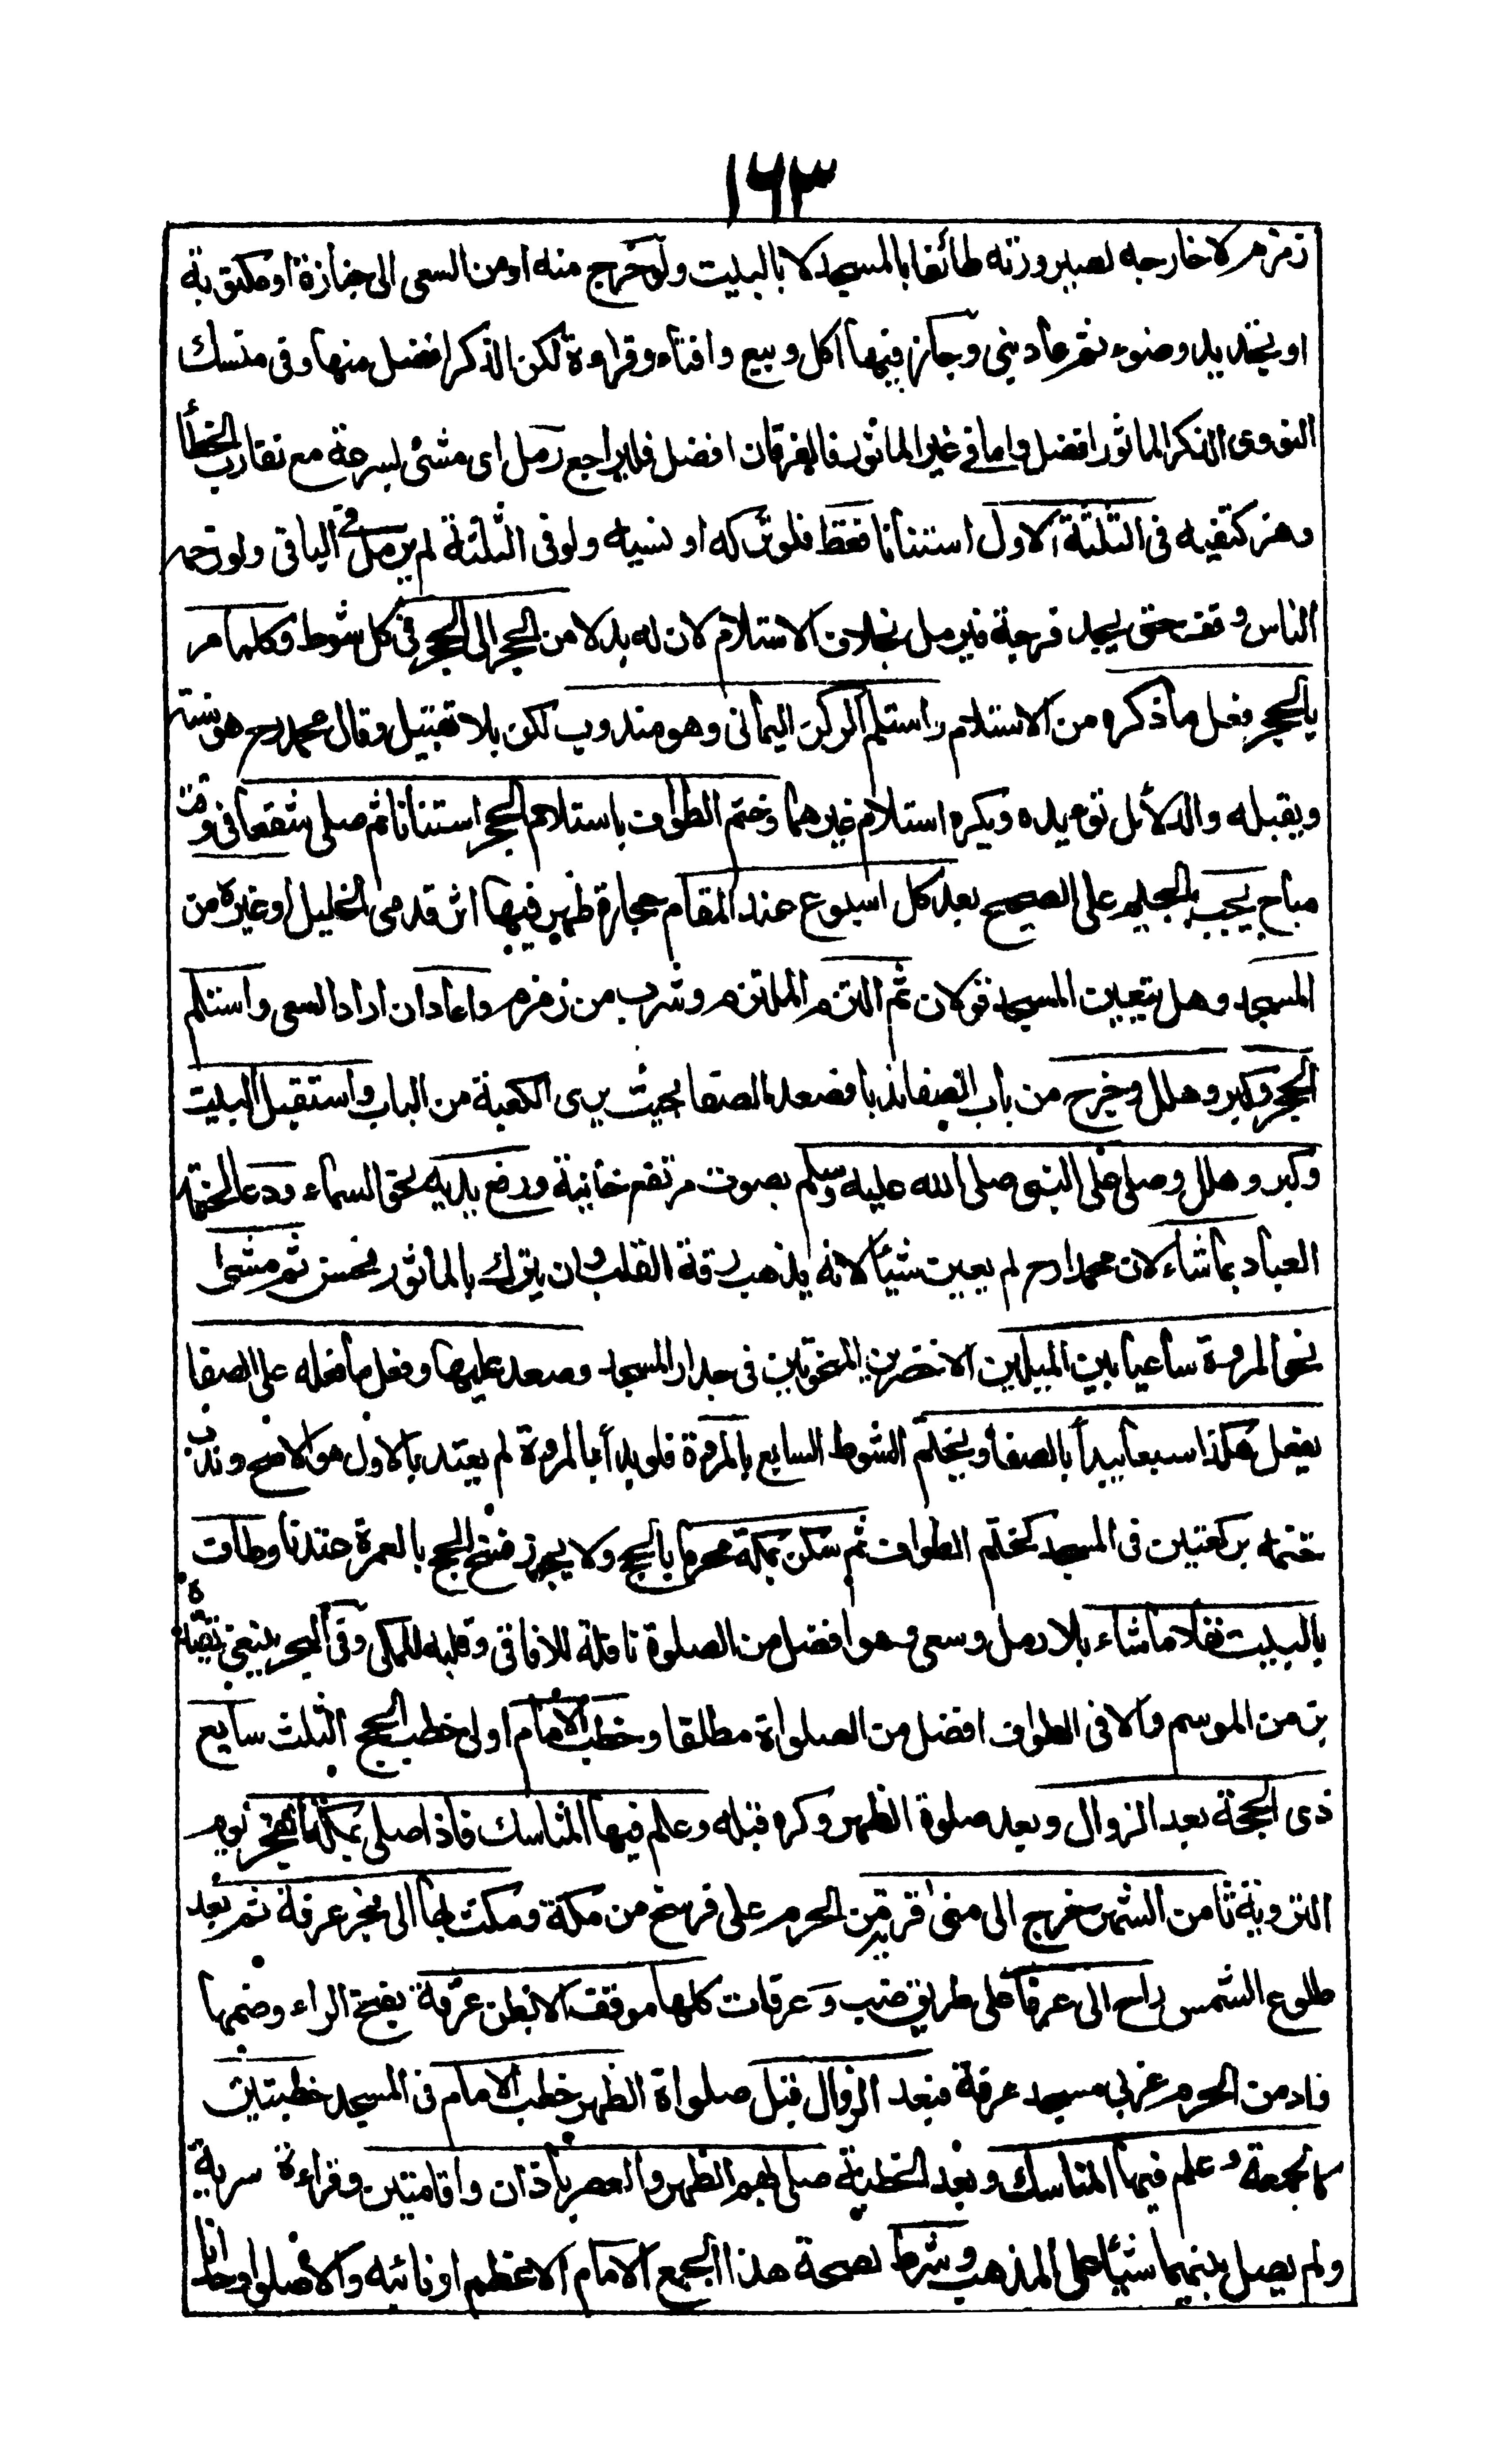 ١٦٣
زمزم لا خارجه لصيرورته طائفا بالمسجد لا بالبيت ولو خرج منه او من السعى الى جنازة او مكتوبة
او تجديد وضوء ثم عاد بنى وجاز فيها اكل وبيع وافتاء وقراءة لكن الذكر افضل منها وفى منسك
النووى الذكر الماثور افضل واما فى غير الماثور فالقرآن افضل فليراجع رمل اى مشى بسرعة مع تقارب الخطأ
وهز كتفيه فى الثلثة الاول استنانا فقط فلو تركه او نسيه ولو فى الثلثة لم يرمل فى الباقى ولو زحمه
الناس وقف حتى يجد فرجة فيرمل بخلاف الاستلام لان له بدلا من الحجر الى الحجر فى كل شوط وكلما مر
بالحجر فعل ما ذكره من الاستلام واستلم الركن اليمانى وهو مندوب لكن بلا تقبيل وقال محمد رح هو سنة
ويقبله والدلائل تؤيده ويكره استلام غيرهما وختم الطواف باستلام الحجر استنانا ثم صلى شفعا فى وقت
مباح يجب بالجيم على الصحيح بعد كل اسبوع عند المقام حجارة ظهر فيها اثر قدمى الخليل او غيره من
المسجد وهل يتعين المسجد قولان ثم التزم الملتزم وشرب من زمزم وعاد ان اراد السعى واستلم
الحجر وكبر وهلل وخرج من باب الصفا ندبا فصعد الصفا بحيث يرى الكعبة من الباب واستقبل البيت
وكبر وهلل وصلى على النبى صلى الله عليه وسلم بصوت مرتفع خانية ورفع يديه نحو السماء ودعا لختمه
العباد بما شاء لان محمدا رح لم يعين شيئا لانه يذهب رقة القلب وان تبرك بالماثور فحسن ثم مشى
نحو المروة ساعيا بين الميلين الاخضرين المنحوتين فى جدار المسجد وصعد عليها وفعل ما فعله على الصفا
يفعل هكذا سبعا يبدأ بالصفا ويختم الشوط السابع بالمروة فلو بدأ بالمروة لم يعتد بالاول هو الاصح وندب
ختمه بركعتين فى المسجد كختم الطواف ثم سكن بمكة محرما بالحج ولا يجوز فسخ الحج بالعمرة عندنا وطاف
بالبيت نفلا ما شاء بلا رمل وسعى وهو افضل من الصلوة نافلة للافاقى وقلبه للمكى وفى البحر ينبغى تقييده
بزمن الموسم والا فى الطواف افضل من الصلوة مطلقا وخطب الامام اولى خطب الحج الثلث سابع
ذى الحجة بعد الزوال وبعد صلوة الظهر وكره قبله وعلم فيها المناسك فاذا صلى بمكة الفجر يوم
التروية ثامن الشهر خرج الى منى قرية من الحرم على فرسخ من مكة ومكث بها الى فجر عرفة ثم بعد
طلوع الشمس راح الى عرفات على طريق ضب وعرفات كلها موقف الا بطن عرنة بفتح الراء وضمها
واد من الحرم غربى مسجد عرفة فبعد الزوال قبل صلواة الظهر خطب الامام فى المسجد خطبتين
كالجمعة وعلم فيها المناسك وبعد الخطبة صلى بهم الظهر والعصر باذان واقامتين وقراءة سرية
ولم يصل بينهما شيئا على المذهب وشرط لصحة هذا الجمع الامام الاعظم او نائبه والا صلوا وحدانا